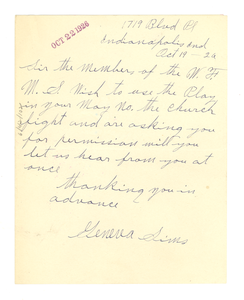 OCT 22 1926
1719 Blvd Pl
Indianapolis Ind
Oct 19 - 26
Sir the members of the M. F
M. S wish to use the Play
in your May No. the Church
fight and are asking you
for permission will you
let us hear from you at
once
thanking you in
advance
Geneva Sims